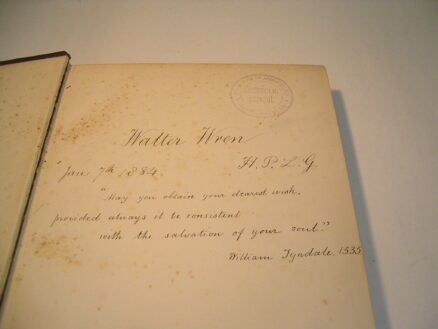 Walter Wren
H. P. L. G.
Jan 7th 1884
"May you obtain your dearest wish,
provided always it be consistent
with the salvation of your soul."
William Tyndale. 1535